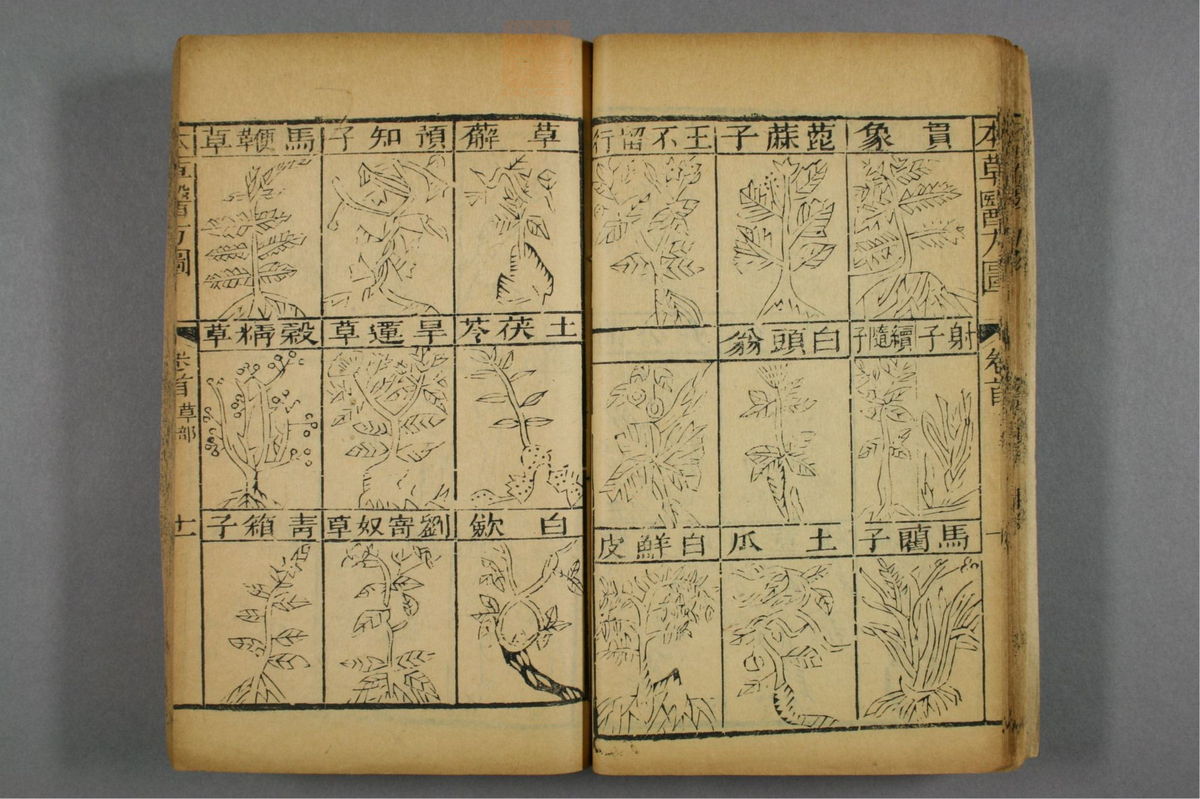 本草醫方圖
卷首
貫象
萞蔴子
王不留行
射子
續隨子
白頭翁
馬藺子
土瓜
白鮮皮
草薢
預知子
馬鞭草
土茯苓
旱蓮草
穀精草
白歛
劉寄奴草
青箱子
本草醫方圖
卷首
草部
十一